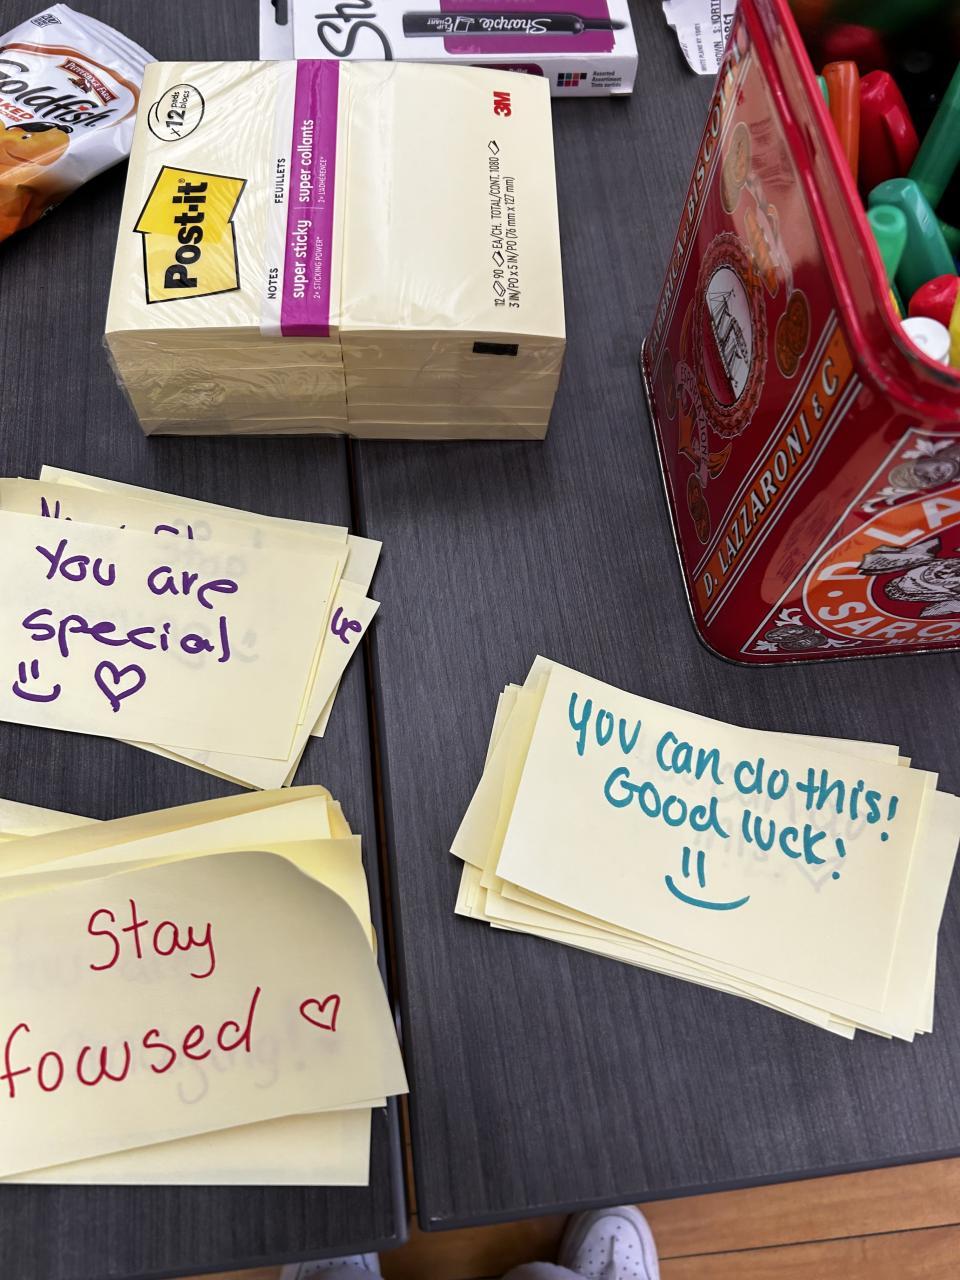 Goldfish
PEPPERIDGE FARM
BAKED
Sh
Sharpie
FLIP CHART
Assorted
Assortment
x 12 pads
blocs
Post-it
NOTES
FEUILLETS
super sticky
super collants
2x STICKING POWER*
2x L'ADHÉRENCE*
3M
12 90 EA/CH. TOTAL/CONT. 1080
3 IN/PO x 5 IN/PO (76 mm x 127 mm)
D. LAZZARONI & C
You are
special
You can do this!
Good luck!
Stay
focused